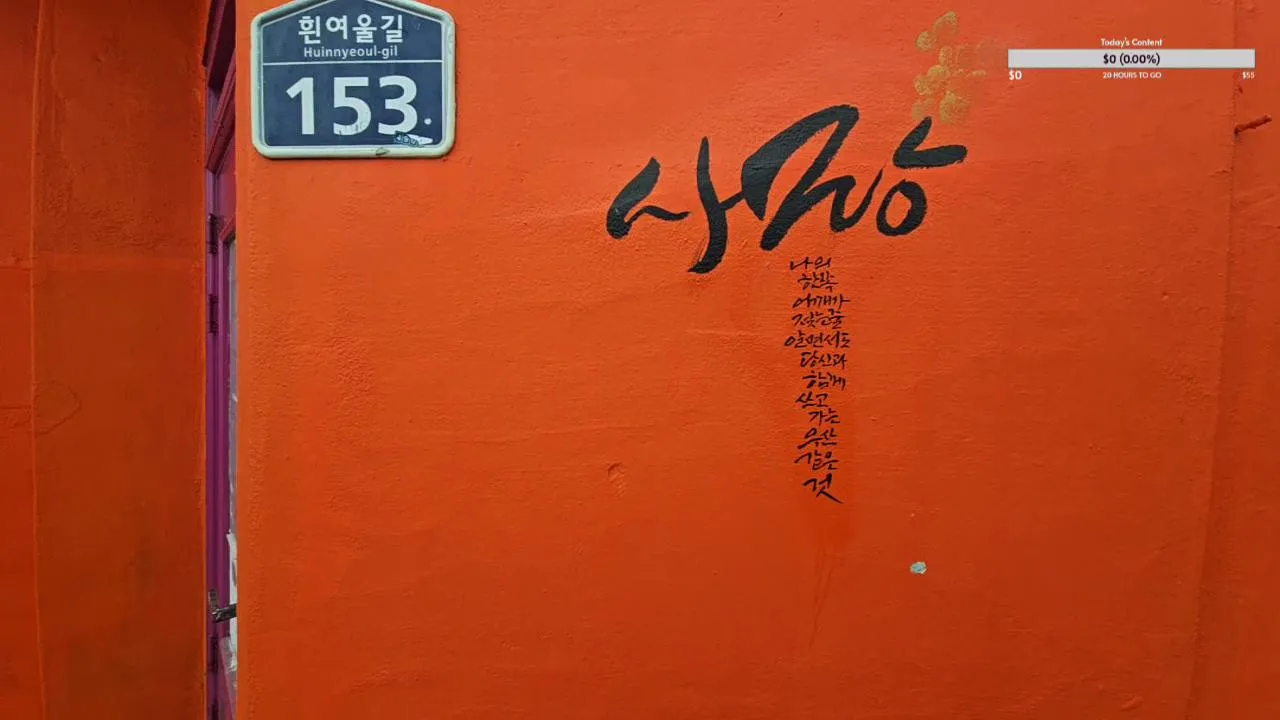 흰여울길
Huinnyeoul-gil
153
Today's Content
$0 (0.00%)
$0
20 HOURS TO GO
$55
사랑
나의
한쪽
어깨가
젖는줄
알면서도
당신과
함께
쓰고
가는
우산
같은
것